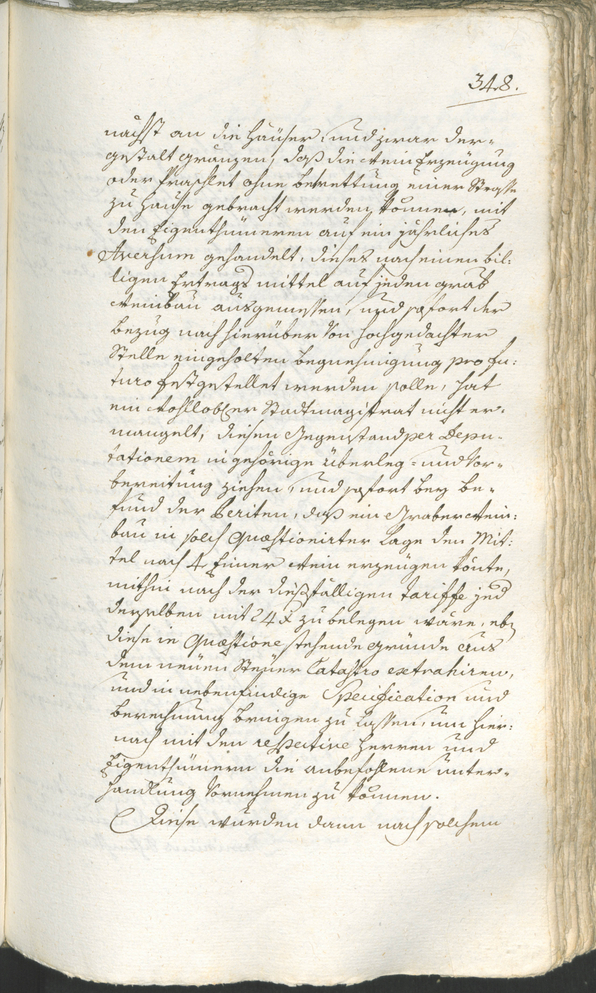 348.
nächst an die Häuser, und zwar der-
gestalt gränzen, daß die Wein Erzeugung
oder Praschlet ohne betrettung einer Strasse
zu Hause gebracht werden können, mit
den Eigenthümeren auf ein jährliches
Aversum gehandelt, dieses nach einen bil-
ligen Ertrags mittel auf jeden grab
Weinbau ausgemessen, und sofort der
Bezug nach hierüber von hochgedachter
Stelle eingeholten begnehmigung pro fu-
turo festgestellet werden solle, hat
ein wohllobler Stadtmagistrat nicht er-
mangelt, diesen Gegenstand per Depu-
tationem in gehörige überleg- und Vor-
bereitung ziehen, und sofort bey be-
fund der Periten, daß ein Graber Wein-
bau in solch quæstionirter Lage den Mit-
tel nach 4 Eimer Wein erzeugen könte,
mithin nach der dießfälligen tariffe jed
derselben mit 24 x zu belegen wäre, eb
diese in Quæstione stehende gründe aus
dem neuen Steuer Catastro extrahiren,
und in nebenfindige Specification und
berechnung bringen zu lassen, um hier-
nach mit den respective Herren und
Eigenthümern die anbefohlene unter-
handlung vornehmen zu können.
Diese wurden dann nach solchem